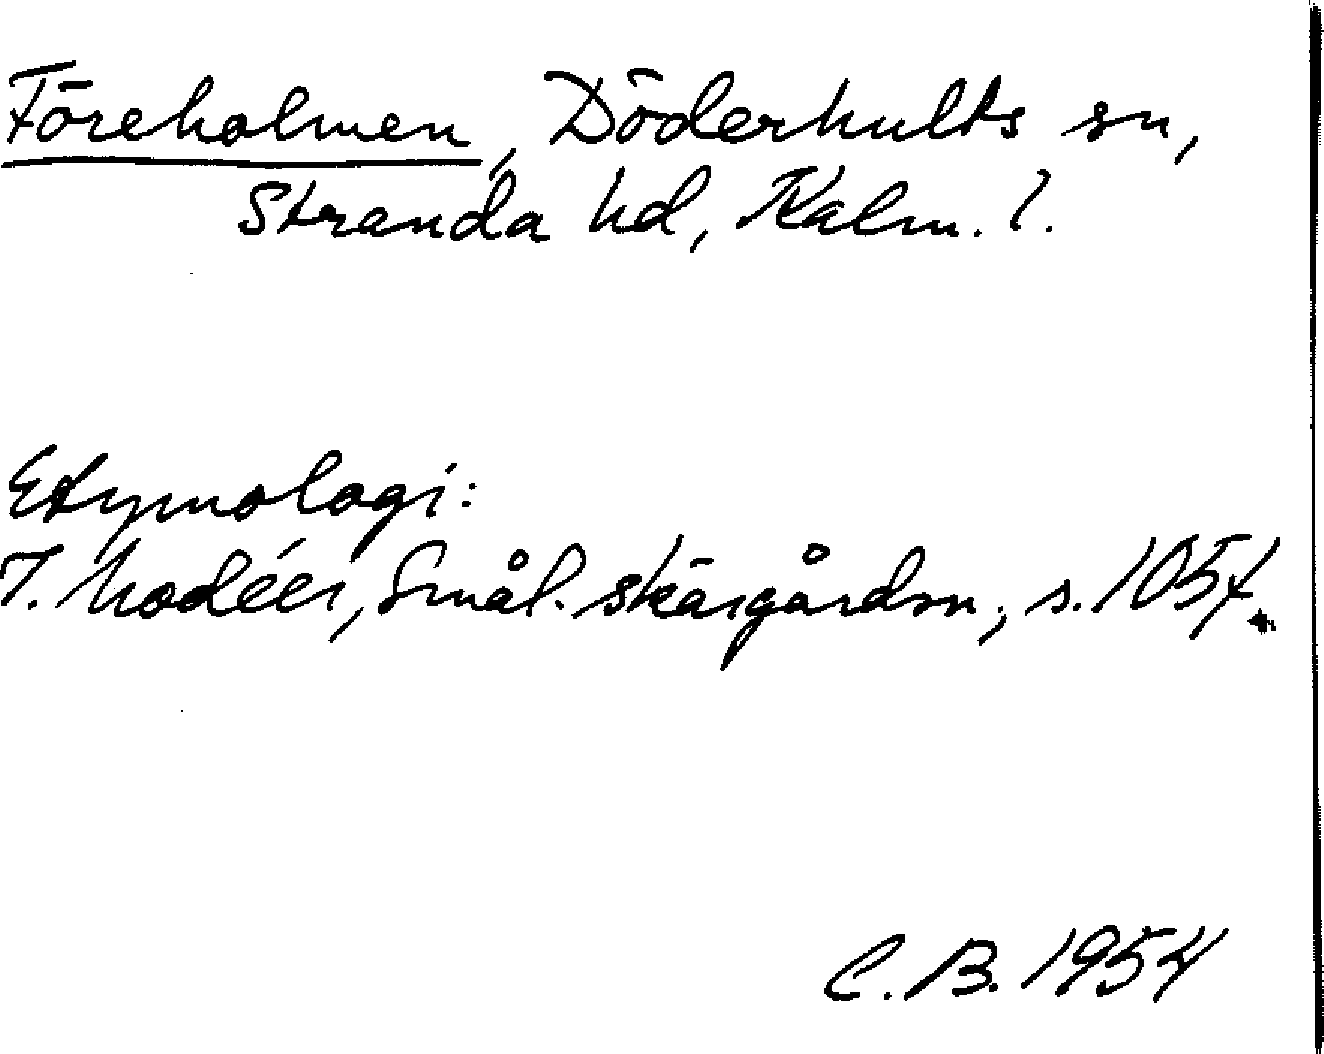 Föreholmen, Döderhults sn,
Stranda hd, Kalm. l.
Etymologi:
I. Modéer, Smål. skärgårdsn., s. 105 f.
C. B. 1954